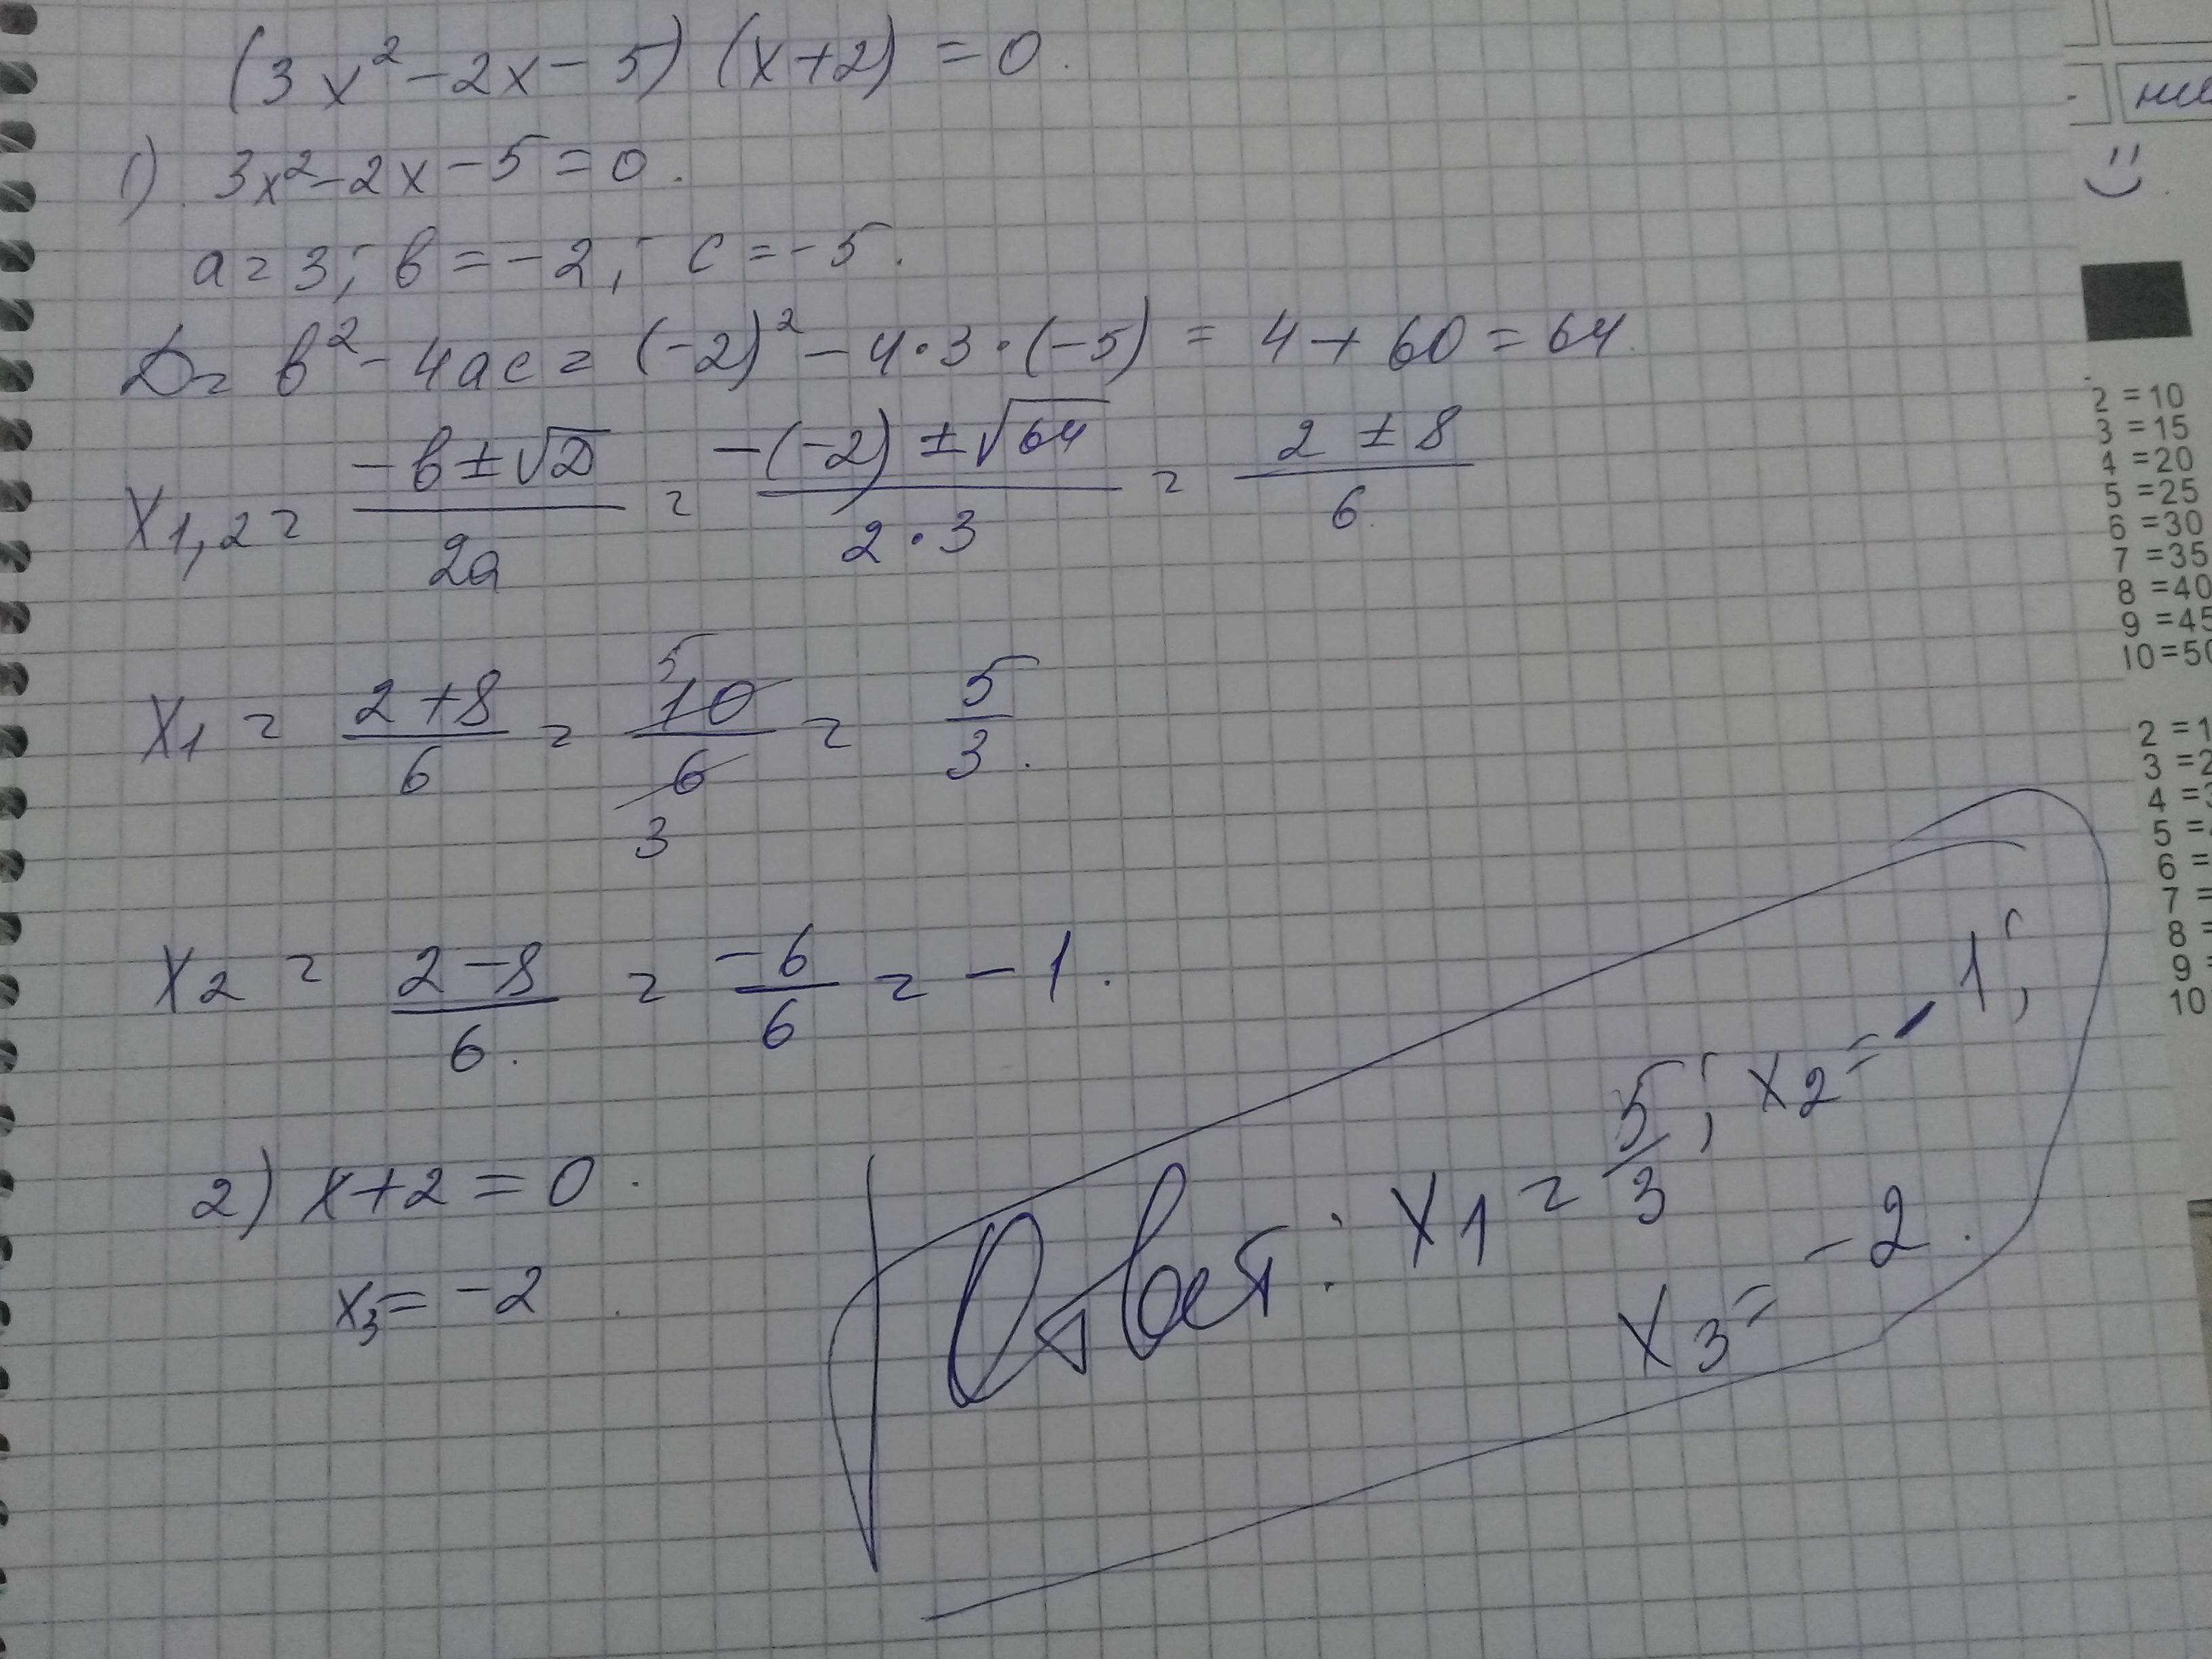 (3x² - 2x - 5) (x+2) = 0.
1) 3x² - 2x - 5 = 0.
a = 3; b = -2; c = -5.
D = b² - 4ac = (-2)² - 4·3·(-5) = 4 + 60 = 64.
x1,2 = (-b ± √D)/(2a) = (-(-2) ± √64)/(2·3) = (2 ± 8)/6.
x1 = (2+8)/6 = 10/6 = 5/3.
5
3
x2 = (2-8)/6. = -6/6 = -1.
2) x+2 = 0.
x3 = -2.
Ответ: x1 = 5/3; x2 = -1;
x3 = -2.
2 =10
3 =15
4 =20
5 =25
6 =30
7 =35
8 =40
9 =45
10=50
2 =1
3 =2
4 =3
5 =
6 =
7 =
8 =
9 =
10